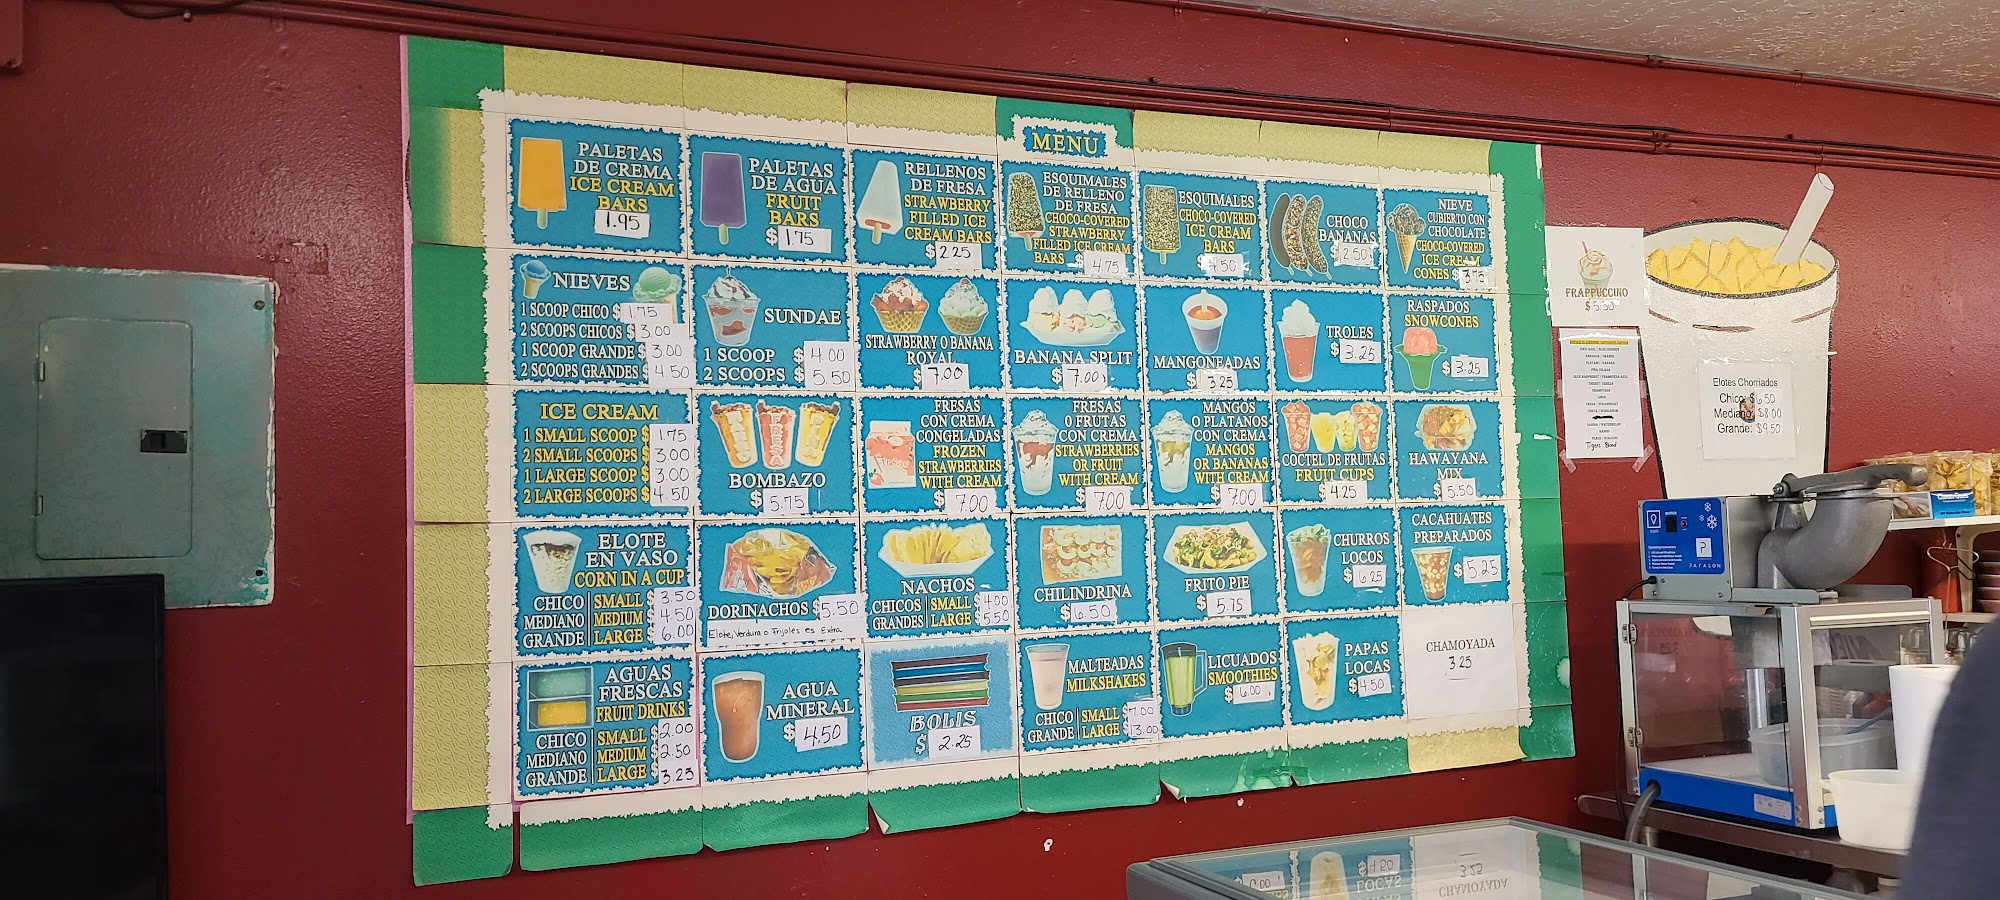 MENU
PALETAS
DE CREMA
ICE CREAM
BARS
1.95
PALETAS
DE AGUA
FRUIT
BARS
$1.75
RELLENOS
DE FRESA
STRAWBERRY
FILLED ICE
CREAM BARS
$2.25
ESQUIMALES
DE RELLENO
DE FRESA
CHOCO-COVERED
STRAWBERRY
FILLED ICE CREAM
BARS $4.75
ESQUIMALES
CHOCO-COVERED
ICE CREAM
BARS
$4.50
CHOCO
BANANAS
$2.50
NIEVE
CUBIERTO CON
CHOCOLATE
CHOCO-COVERED
ICE CREAM
CONES $3.75
NIEVES
1 SCOOP CHICO $1.75
2 SCOOPS CHICOS $3.00
1 SCOOP GRANDE $3.00
2 SCOOPS GRANDES $4.50
SUNDAE
1 SCOOP $4.00
2 SCOOPS $5.50
STRAWBERRY O BANANA
ROYAL
$7.00
BANANA SPLIT
$7.00
MANGONEADAS
$3.25
TROLES
$3.25
RASPADOS
SNOWCONES
$3.25
ICE CREAM
1 SMALL SCOOP $1.75
2 SMALL SCOOPS $3.00
1 LARGE SCOOP $3.00
2 LARGE SCOOPS $4.50
FRESA
BOMBAZO
$5.75
FRESAS
CON CREMA
CONGELADAS
FROZEN
STRAWBERRIES
WITH CREAM
$7.00
FRESAS
O FRUTAS
CON CREMA
STRAWBERRIES
OR FRUIT
WITH CREAM
$7.00
MANGOS
O PLATANOS
CON CREMA
MANGOS
OR BANANAS
WITH CREAM
$7.00
COCTEL DE FRUTAS
FRUIT CUPS
$4.25
HAWAYANA
MIX
$5.50
ELOTE
EN VASO
CORN IN A CUP
CHICO SMALL $3.50
MEDIANO MEDIUM $4.50
GRANDE LARGE $6.00
DORINACHOS $5.50
Elote, Verdura o Frijoles es Extra.
NACHOS
CHICOS SMALL $4.00
GRANDES LARGE $5.50
CHILINDRINA
$6.50
FRITO PIE
$5.75
CHURROS
LOCOS
$6.25
CACAHUATES
PREPARADOS
$5.25
AGUAS
FRESCAS
FRUIT DRINKS
CHICO SMALL $2.00
MEDIANO MEDIUM $2.50
GRANDE LARGE $3.25
AGUA
MINERAL
$4.50
BOLIS
$2.25
MALTEADAS
MILKSHAKES
CHICO SMALL $7.00
GRANDE LARGE $13.00
LICUADOS
SMOOTHIES
$6.00
PAPAS
LOCAS
$4.50
CHAMOYADA
3.25
FRAPPUCCINO
Tigers Blood
Elotes Chorriados
Chico: $6.50
Mediano: $8.00
Grande: $9.50
PARAGON